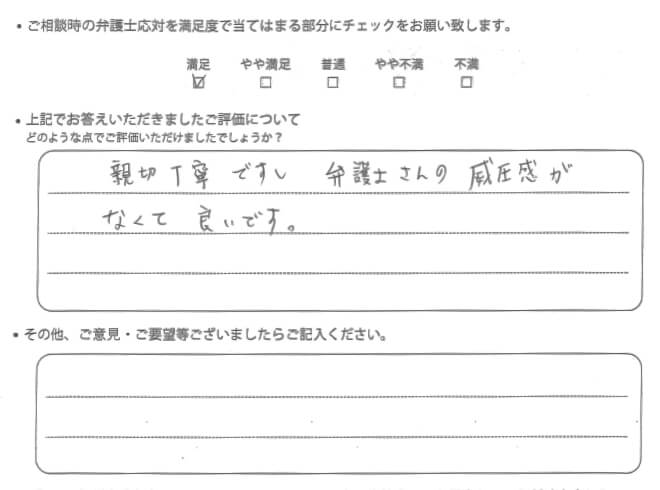 • ご相談時の弁護士応対を満足度で当てはまる部分にチェックをお願い致します。
満足 やや満足 普通 やや不満 不満
☑ ☐ ☐ ☐ ☐
• 上記でお答えいただきましたご評価について
どのような点でご評価いただけましたでしょうか？
親切丁寧ですし 弁護士さんの威圧感が
なくて 良いです。
• その他、ご意見・ご要望等ございましたらご記入ください。